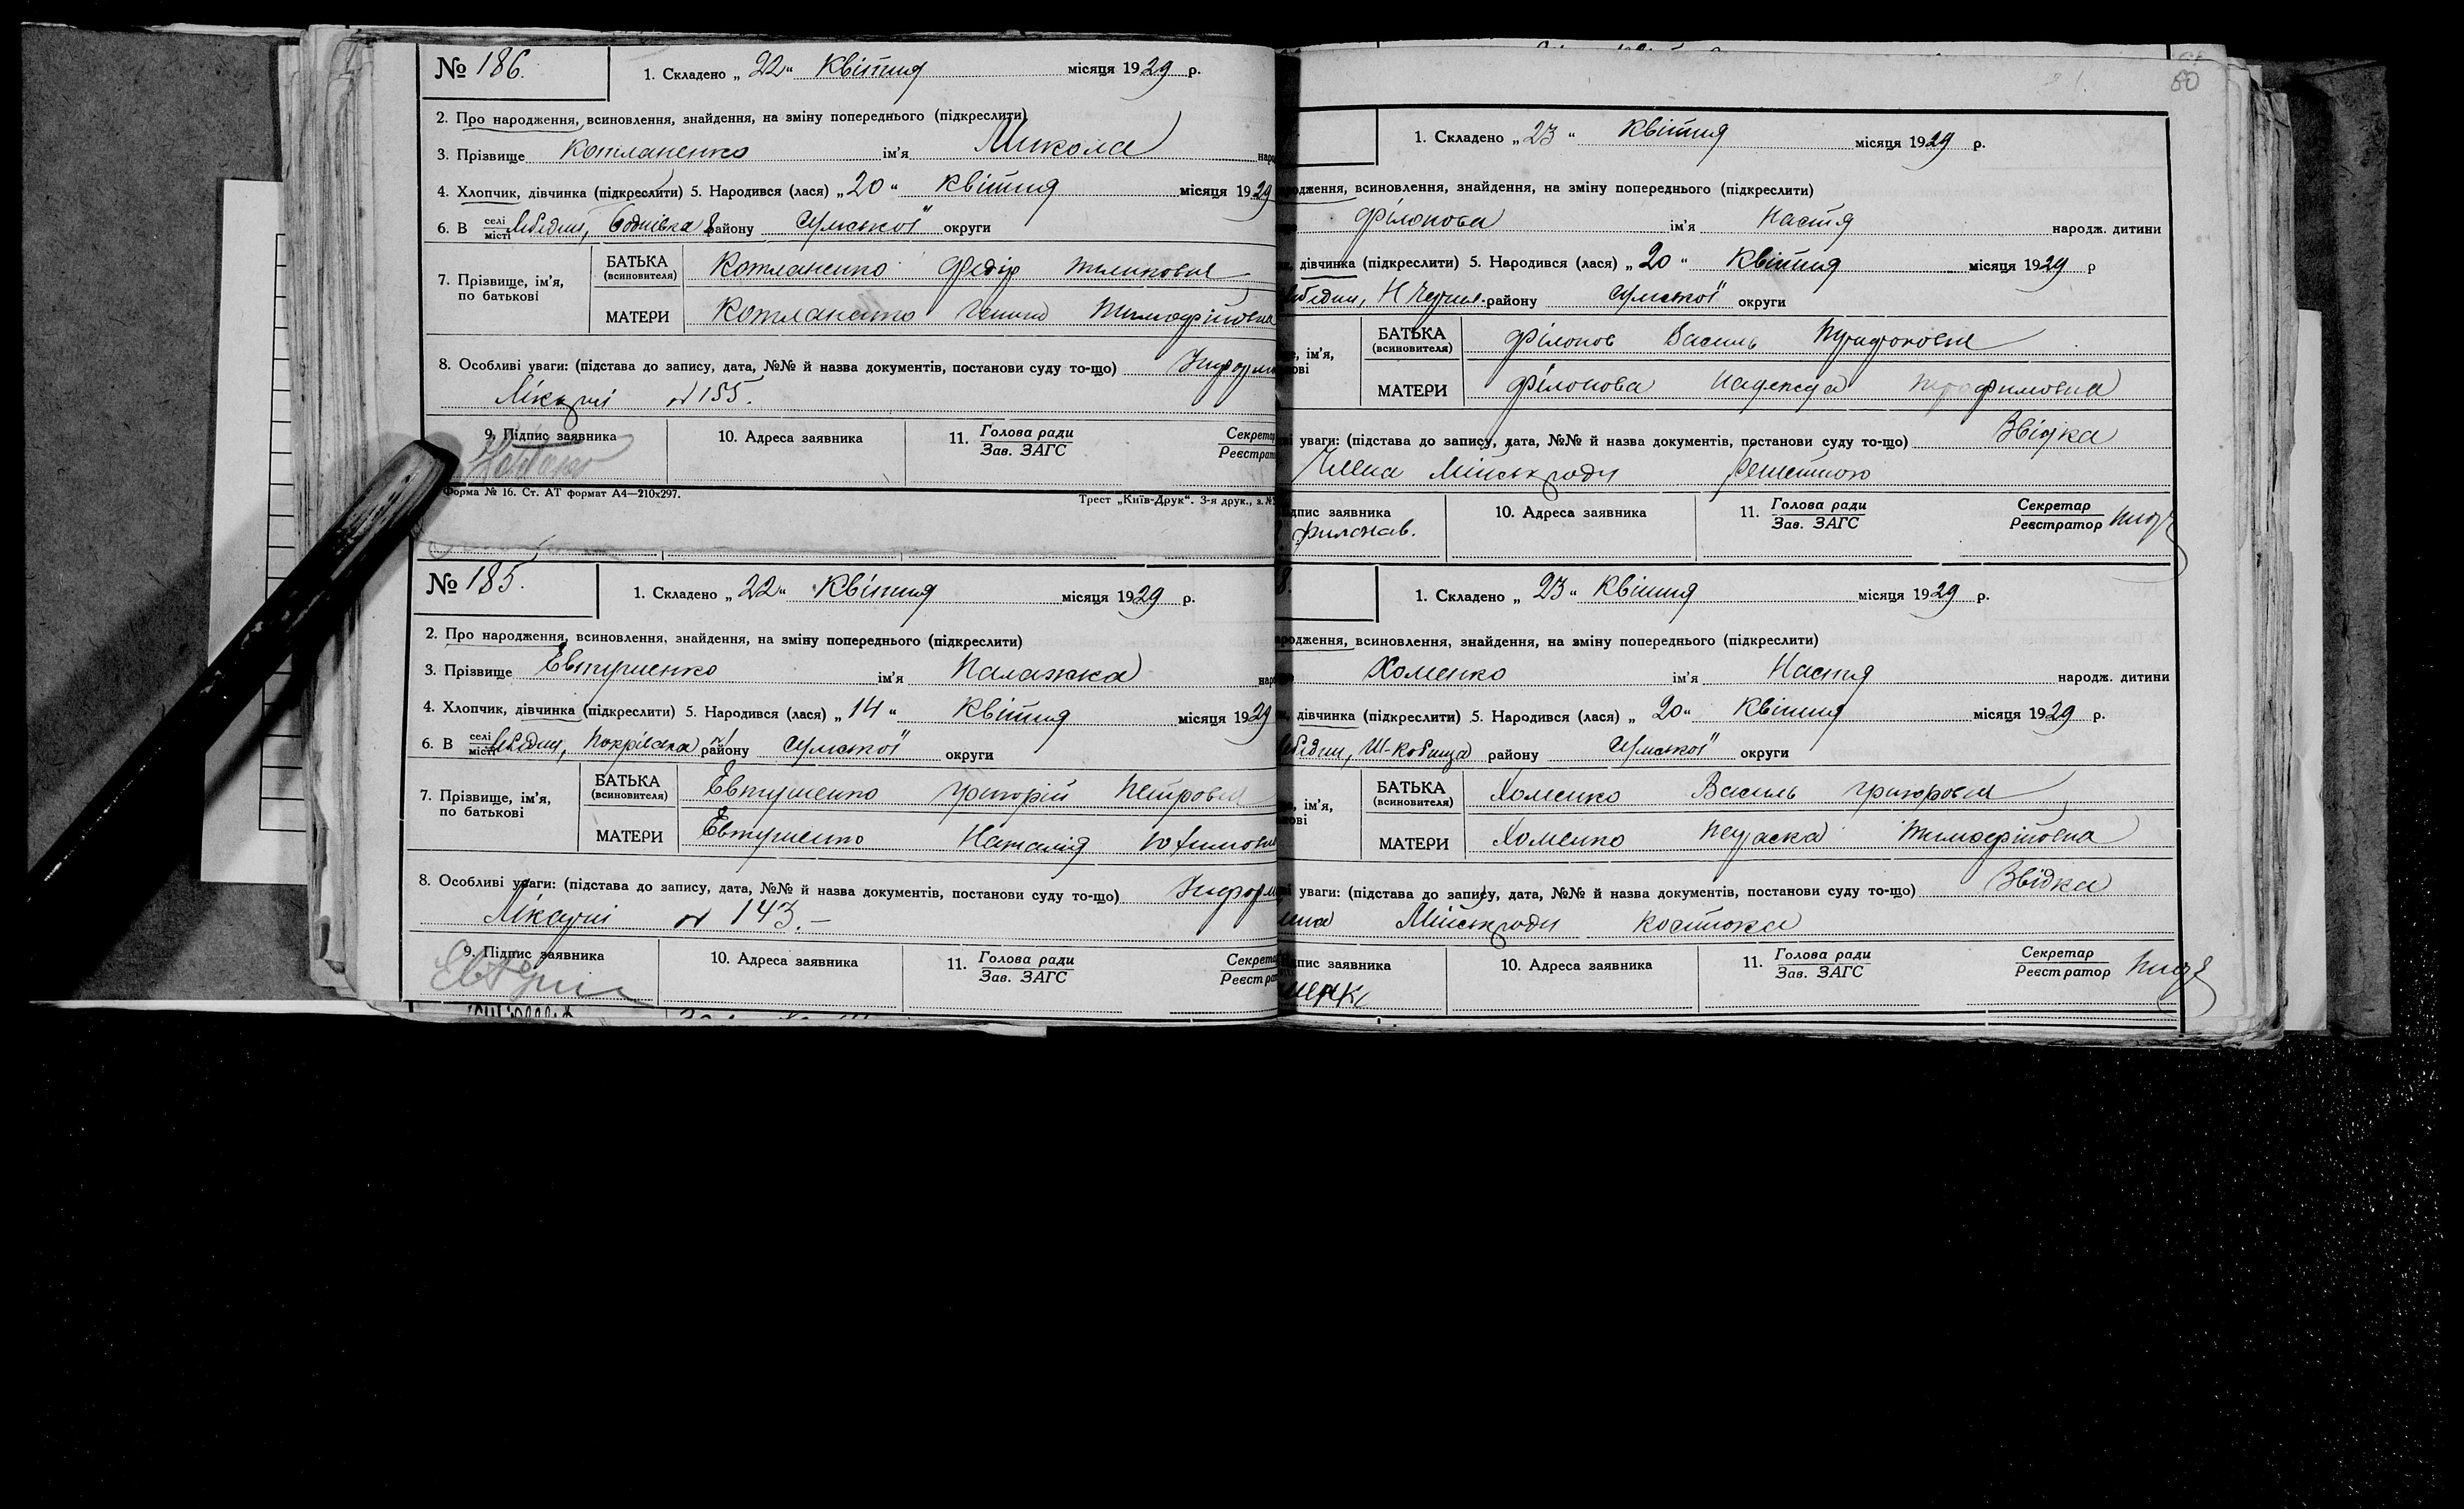 № 186.
1. Складено „ 22 “ Квітня місяця 1929 р.
2. Про народження, всиновлення, знайдення, на зміну попереднього (підкреслити)
3. Прізвище Котланенко ім'я Микола наро
4. Хлопчик, дівчинка (підкреслити) 5. Народився (лася) „ 20 “ Квітня місяця 1929
6. В селі місті Лебедин, району Сумської округи
7. Прізвище, ім'я, по батькові
БАТЬКА (всиновителя) Котланенко Федір
МАТЕРИ Котланенко Тимофіївна
8. Особливі уваги: (підстава до запису, дата, №№ й назва документів, постанови суду то-що) Інформ
Лікарні № 155.
9. Підпис заявника
10. Адреса заявника
11. Голова ради Зав. ЗАГС
Секретар Реєстрат
Форма № 16. Ст. АТ формат А4—210х297.
Трест „Київ-Друк“. 3-я друк., з. №
№ 185.
1. Складено „ 22 “ Квітня місяця 1929 р.
2. Про народження, всиновлення, знайдення, на зміну попереднього (підкреслити)
3. Прізвище Евтушенко ім'я Палажка наро
4. Хлопчик, дівчинка (підкреслити) 5. Народився (лася) „ 14 “ Квітня місяця 1929
6. В селі місті Лебедин, Покрівська району Сумської округи
7. Прізвище, ім'я, по батькові
БАТЬКА (всиновителя) Евтушенко Григорій Петрович
МАТЕРИ Евтушенко Наталія Юхимовна
8. Особливі уваги: (підстава до запису, дата, №№ й назва документів, постанови суду то-що) Інформ
Лікарні № 143.–
9. Підпис заявника
10. Адреса заявника
11. Голова ради Зав. ЗАГС
Секрета Реєстра
80
1. Складено „ 23 “ Квітня місяця 1929 р.
родження, всиновлення, знайдення, на зміну попереднього (підкреслити)
Філонова ім'я Настя народж. дитини
дівчинка (підкреслити) 5. Народився (лася) „ 20 “ Квітня місяця 1929 р
ебедин, району Сумської округи
е, ім'я, ові
БАТЬКА (всиновителя) Філонов Василь
МАТЕРИ Філонова Надежда Трофимовна
уваги: (підстава до запису, дата, №№ й назва документів, постанови суду то-що) Звідка
Члена Міськради
дпис заявника
Филонав.
10. Адреса заявника
11. Голова ради Зав. ЗАГС
Секретар Реєстратор
8.
1. Складено „ 23 “ Квітня місяця 1929 р.
родження, всиновлення, знайдення, на зміну попереднього (підкреслити)
Хоменко ім'я Настя народж. дитини
дівчинка (підкреслити) 5. Народився (лася) „ 20 “ Квітня місяця 1929 р.
ебедин, Ш-Кобища району Сумської округи
, ім'я, ові
БАТЬКА (всиновителя) Хоменко Василь Григорович
МАТЕРИ Хоменко Параска Тимофіївна
уваги: (підстава до запису, дата, №№ й назва документів, постанови суду то-що) Звідка
Міськради Костюка
дпис заявника
менк
10. Адреса заявника
11. Голова ради Зав. ЗАГС
Секретар Реєстратор